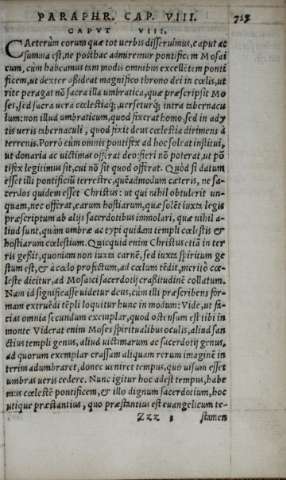 PARAPHR. CAP. VIII.
CAPVT VIII.
CAeterùm eorum quæ tot uerbis disseruimus, caput ac
summa est, ne posthac admiremur pontificem Mosai
cum, cùm habeamus iam modis omnibus excellētem ponti
ficem, ut dexter assideat magnifico throno dei in cœlis, ut
rite peragat nō sacra illa umbratica, quæ præscripsit Mo-
ses, sed sacra uera cœlestiaq;, uerseturq; intra tabernacu
lum: non illud umbraticum, quod fixerat homo, sed in ady
tis ueris tabernaculi, quod fixit deus cœlestia dirimens à
terrenis. Porrò cùm omnis pontifex ad hoc soleat institui,
ut donaria ac uictimas offerat deo: fieri nō poterat, ut pō
tifex legitimus sit, cui nō sit quod offerat. Quòd si datum
esset illi pontificiū terrestre, quēadmodum cæteris, ne sa-
cerdos quidem esset Christus: ut qui nihil obtulerit un-
quam, nec offerat, earum hostiarum, quæ solēt iuxta legis
præscriptum ab alijs sacerdotibus immolari, quæ nihil a-
liud sunt, quàm umbræ ac typi quidam tēpli cœlestis &
hostiarum cœlestium. Quicquid enim Christus etiā in ter
ris gessit, quoniam non iuxta carnē, sed iuxta spiritum ge
stum est, & à cœlo profectum, ad cœlum tēdit, meritò cœ-
leste dicitur, ad Mosaici sacerdotij crassitudinē collatum.
Nam id significasse uidetur deus, cùm illi præscribens for-
mam extruēdi tēpli loquitur hunc in modum: Vide, ut fa
cias omnia secundum exemplar, quod ostensum est tibi in
monte. Viderat enim Moses spiritualibus oculis, aliud san
ctius templi genus, aliud uictimarum ac sacerdotij genus,
ad quorum exemplar crassam aliquam rerum imaginē in
terim adumbraret, donec ueniret tempus, quo uisum esset
umbras ueris cedere. Nunc igitur hoc adest tempus, habe
mus cœlestē pontificem, & illo dignum sacerdotium, hoc
utique præstantius, quo præstantius est euangelicum te-
Zzz
stamen